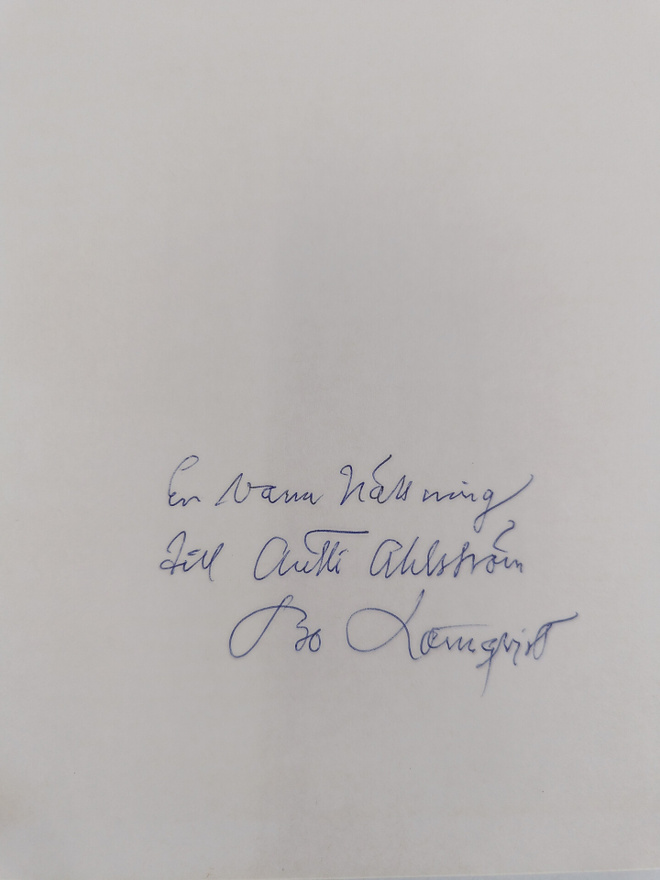 En varm hälsning
till Antti Ahlström
Bo Lönnqvist